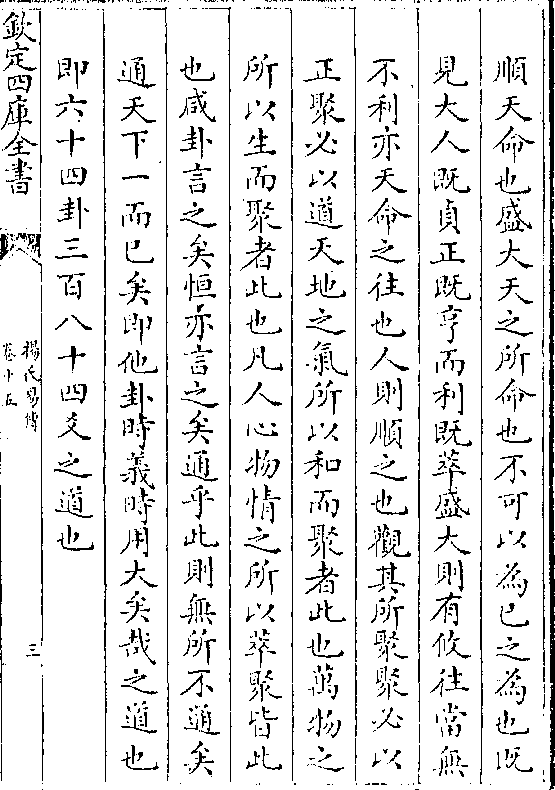 順天命也盛大天之所命也不可以為已之為也既
見大人既貞正既亨而利既萃盛大則有攸往當無
不利亦天命之往也人則順之也觀其所聚聚必以
正聚必以道天地之氣所以和而聚者此也萬物之
所以生而聚者此也凡人心物情之所以萃聚皆此
也咸卦言之矣恒亦言之矣通乎此則無所不通矣
通天下一而已矣即他卦時義時用大矣哉之道也
即六十四卦三百八十四爻之道也
欽定四庫全書
楊氏易傳
卷十五
三